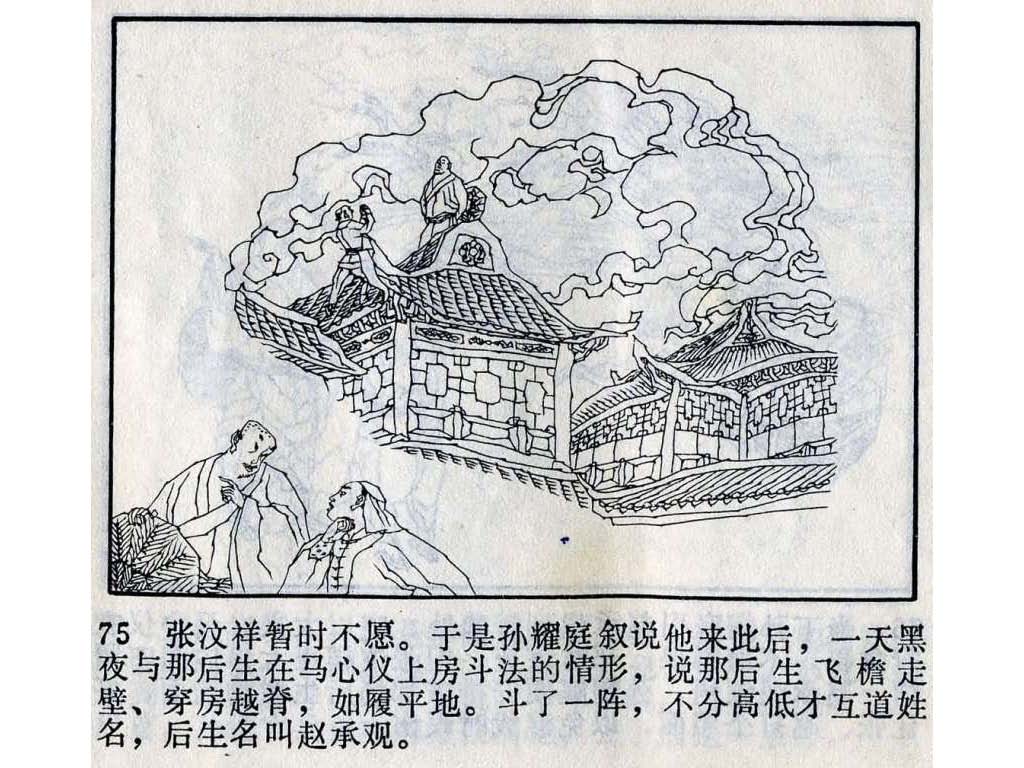 75 张汶祥暂时不愿。于是孙耀庭叙说他来此后，一天黑
夜与那后生在马心仪上房斗法的情形，说那后生飞檐走
壁、穿房越脊，如履平地。斗了一阵，不分高低才互道姓
名，后生名叫赵承观。